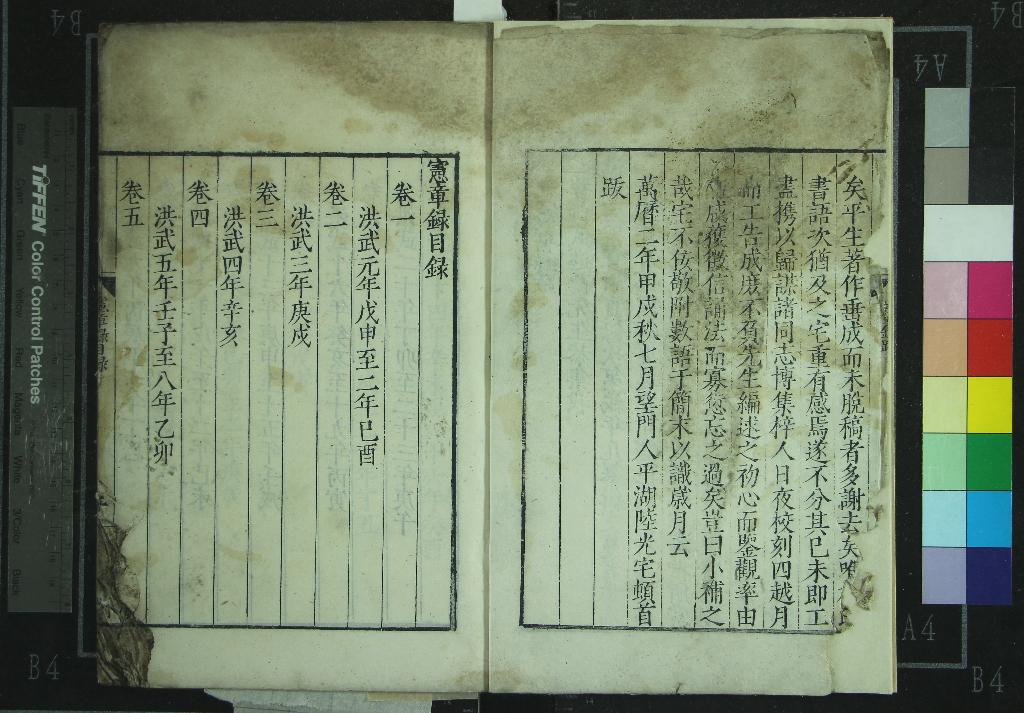 矣平生著作垂成而未脫稿者多謝去矣唯
書語次猶及之宅重有感焉遂不分其已未即工
盡携以歸謀諸同志博集梓人日夜校刻四越月
而工告成庶不負先生編述之初心而鑒觀率由
成獲徵信誦法而寡愆忘之過矣豈曰小補之
哉宅不佞敬附數語于簡末以識歲月云
萬曆二年甲戌秋七月望門人平湖陸光宅頓首
跋
憲章録目録
卷一
洪武元年戊申至二年己酉
卷二
洪武三年庚戌
卷三
洪武四年辛亥
卷四
洪武五年壬子至八年乙卯
卷五
TIFFEN Color Control Patches
Blue
Cyan
Green
Yellow
Red
Magenta
White
3/Color
Black
B4
A4
B4
A4
B4
B4